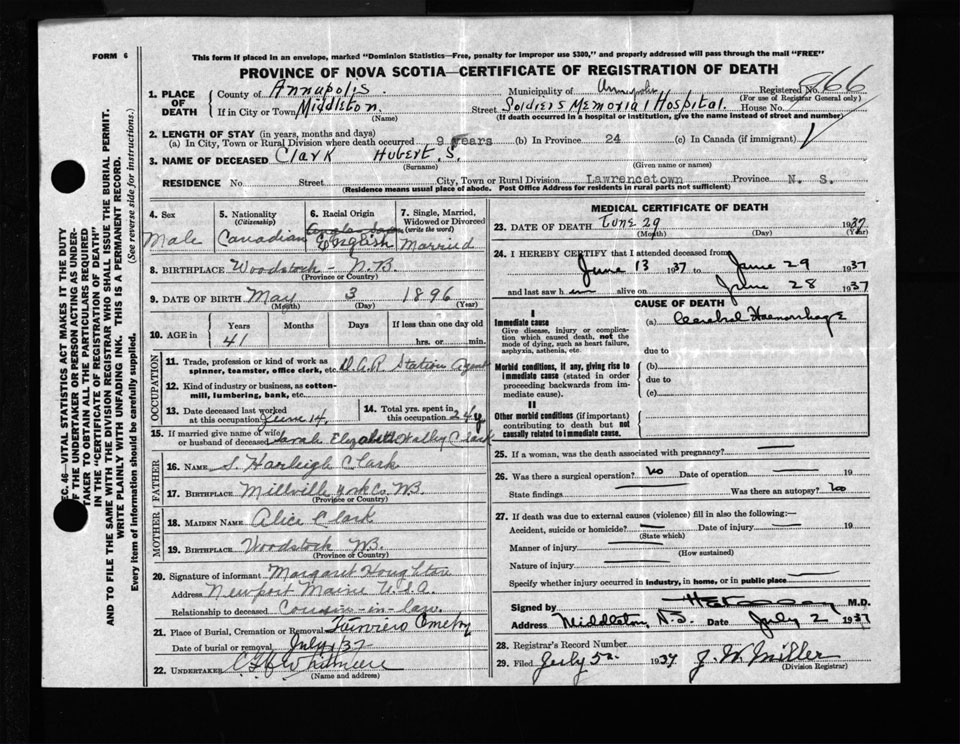 FORM 6
This form if placed in an envelope, marked "Dominion Statistics—Free, penalty for improper use $300," and properly addressed will pass through the mail "FREE"
PROVINCE OF NOVA SCOTIA—CERTIFICATE OF REGISTRATION OF DEATH
1. PLACE OF DEATH
County of Annapolis. Municipality of Annapolis Registered No. 866
(For use of Registrar General only)
If in City or Town Middleton (Name) Street Soldiers Memorial Hospital. House No.
(If death occurred in a hospital or institution, give the name instead of street and number)
2. LENGTH OF STAY (in years, months and days)
(a) In City, Town or Rural Division where death occurred 9 Years (b) In Province 24 (c) In Canada (if immigrant)
3. NAME OF DECEASED Clark Hubert S.
(Surname) (Given name or names)
RESIDENCE No. Street City, Town or Rural Division Lawrencetown Province N. S.
(Residence means usual place of abode. Post Office Address for residents in rural parts not sufficient)
4. Sex Male
5. Nationality (Citizenship) Canadian
6. Racial Origin English
7. Single, Married, Widowed or Divorced (write the word) Married
8. BIRTHPLACE Woodstock - N.B.
(Province or Country)
9. DATE OF BIRTH May 3 1896
(Month) (Day) (Year)
10. AGE in Years Months Days If less than one day old
41 hrs. or min.
OCCUPATION
11. Trade, profession or kind of work as spinner, teamster, office clerk, etc. D.A.R. Station Agent
12. Kind of industry or business, as cotton-mill, lumbering, bank, etc.
13. Date deceased last worked at this occupation June 14.
14. Total yrs. spent in this occupation 24y
15. If married give name of wife or husband of deceased Sarah Elizabeth Clark
FATHER
16. NAME S. Harleigh Clark
17. BIRTHPLACE Millville York Co. N.B.
(Province or Country)
MOTHER
18. MAIDEN NAME Alice Clark
19. BIRTHPLACE Woodstock N.B.
(Province or Country)
20. Signature of informant Margaret Houghton
Address Newport Maine U.S.A.
Relationship to deceased Cousin-in-law.
21. Place of Burial, Cremation or Removal
Date of burial or removal July 1/37
22. UNDERTAKER
(Name and address)
MEDICAL CERTIFICATE OF DEATH
23. DATE OF DEATH June 29 1937
(Month) (Day) (Year)
24. I HEREBY CERTIFY that I attended deceased from
June 13 1937 to June 29 1937
and last saw him alive on June 28 1937
CAUSE OF DEATH
I
Immediate cause (a) Cerebral Haemorrhage
Give disease, injury or complication which caused death, not the mode of dying, such as heart failure, asphyxia, asthenia, etc.
due to
Morbid conditions, if any, giving rise to immediate cause (stated in order proceeding backwards from immediate cause).
(b)
due to
(c)
II
Other morbid conditions (if important) contributing to death but not causally related to immediate cause.
25. If a woman, was the death associated with pregnancy?
26. Was there a surgical operation? No Date of operation 19
State findings Was there an autopsy? No
27. If death was due to external causes (violence) fill in also the following:—
Accident, suicide or homicide? Date of injury 19
(State which)
Manner of injury
(How sustained)
Nature of injury
Specify whether injury occurred in industry, in home, or in public place
Signed by M.D.
Address Middleton, N.S. Date July 2 1937
28. Registrar's Record Number
29. Filed July 5 1937 J. W. Miller
(Division Registrar)
SEC. 46—VITAL STATISTICS ACT MAKES IT THE DUTY OF THE UNDERTAKER OR PERSON ACTING AS UNDERTAKER TO OBTAIN ALL THE PARTICULARS REQUIRED IN THE "CERTIFICATE OF REGISTRATION OF DEATH" AND TO FILE THE SAME WITH THE DIVISION REGISTRAR WHO SHALL ISSUE THE BURIAL PERMIT.
WRITE PLAINLY WITH UNFADING INK. THIS IS A PERMANENT RECORD.
Every item of information should be carefully supplied. (See reverse side for instructions.)